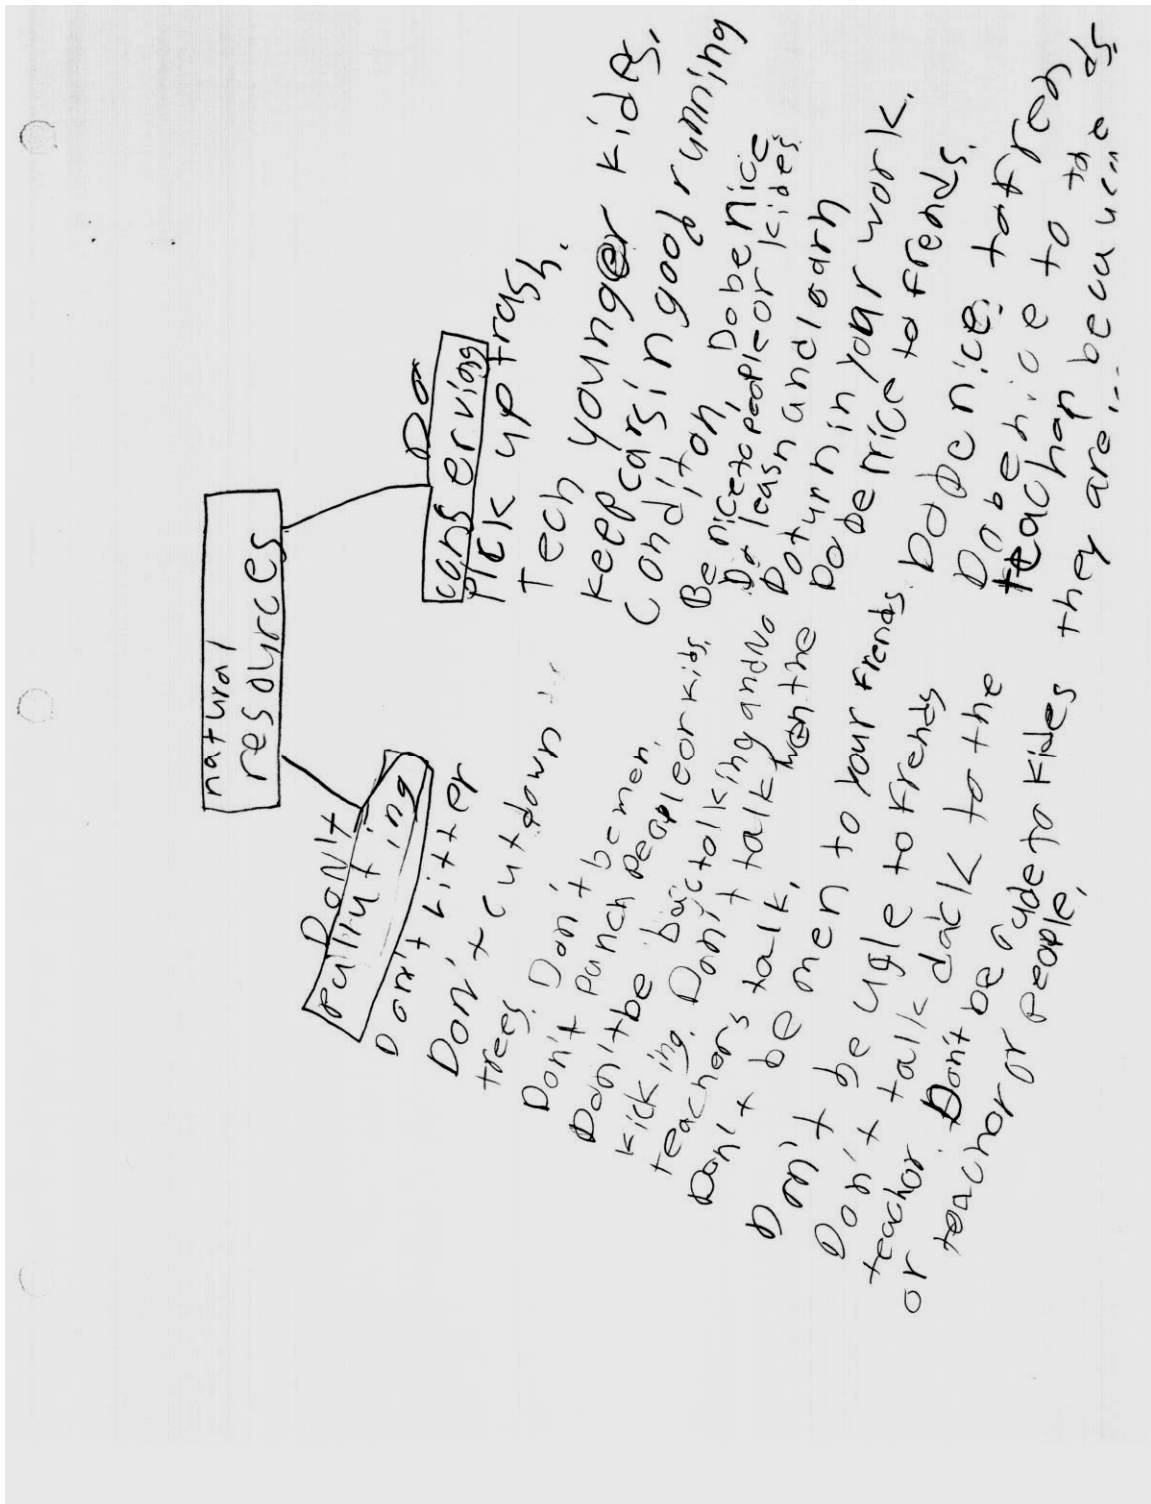 natural
resources
Don't
pullut ing
Don't Litter
Don't cut down
trees. Don't be men.
Don't punch people or kids.
Don't be
kick ing. Don't talk and No
teachor's talk. wen the
Don't be men to your Friends.
Don't be ugle to Frends
Don't talk dack to the
teachor. Don't be rude to kides
or teachor or people.
Do
cons erving
Pick up trash.
Tech younger kids.
keep cars in good running
Conditon. Do be nice
Be nice to people or kides.
Do leasn and learn
Do turn in your work.
Do be nice to frends.
Do be nice to
Do be nice to
teachor
they are ... because